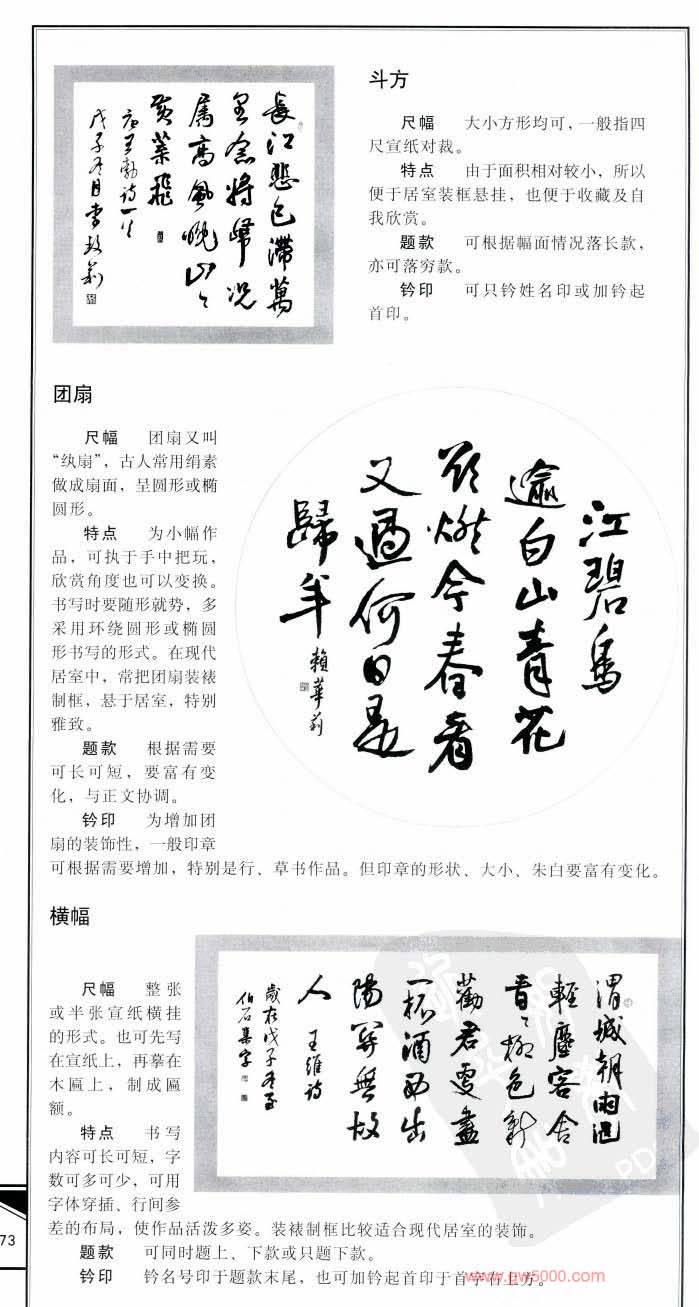 斗方
尺幅 大小方形均可，一般指四
尺宣纸对裁。
特点 由于面积相对较小，所以
便于居室装框悬挂，也便于收藏及自
我欣赏。
题款 可根据幅面情况落长款，
亦可落穷款。
钤印 可只钤姓名印或加钤起
首印。
長江悲已滯萬
里念將歸況
屬高風晚山々
黄葉飛
戊子冬月李
团扇
尺幅 团扇又叫
“纨扇”，古人常用绢素
做成扇面，呈圆形或椭
圆形。
特点 为小幅作
品，可执于手中把玩，
欣赏角度也可以变换。
书写时要随形就势，多
采用环绕圆形或椭圆
形书写的形式。在现代
居室中，常把团扇装裱
制框，悬于居室，特别
雅致。
题款 根据需要
可长可短，要富有变
化，与正文协调。
钤印 为增加团
扇的装饰性，一般印章
可根据需要增加，特别是行、草书作品。但印章的形状、大小、朱白要富有变化。
江碧鸟
逾白山青花
欲燃今春看
又過何日是
歸年 賴華莉
横幅
尺幅 整张
或半张宣纸横挂
的形式。也可先写
在宣纸上，再摹在
木匾上，制成匾
额。
特点 书写
内容可长可短，字
数可多可少，可用
字体穿插、行间参
差的布局，使作品活泼多姿。装裱制框比较适合现代居室的装饰。
题款 可同时题上、下款或只题下款。
钤印 钤名号印于题款末尾，也可加钤起首印于首字右上方。
渭城朝雨浥
輕塵客舍
青々柳色新
勸君更盡
一杯酒西出
陽關無故
人 王維詩
歲在戊子冬至
伯石集字
73
www.gw5000.com
PD